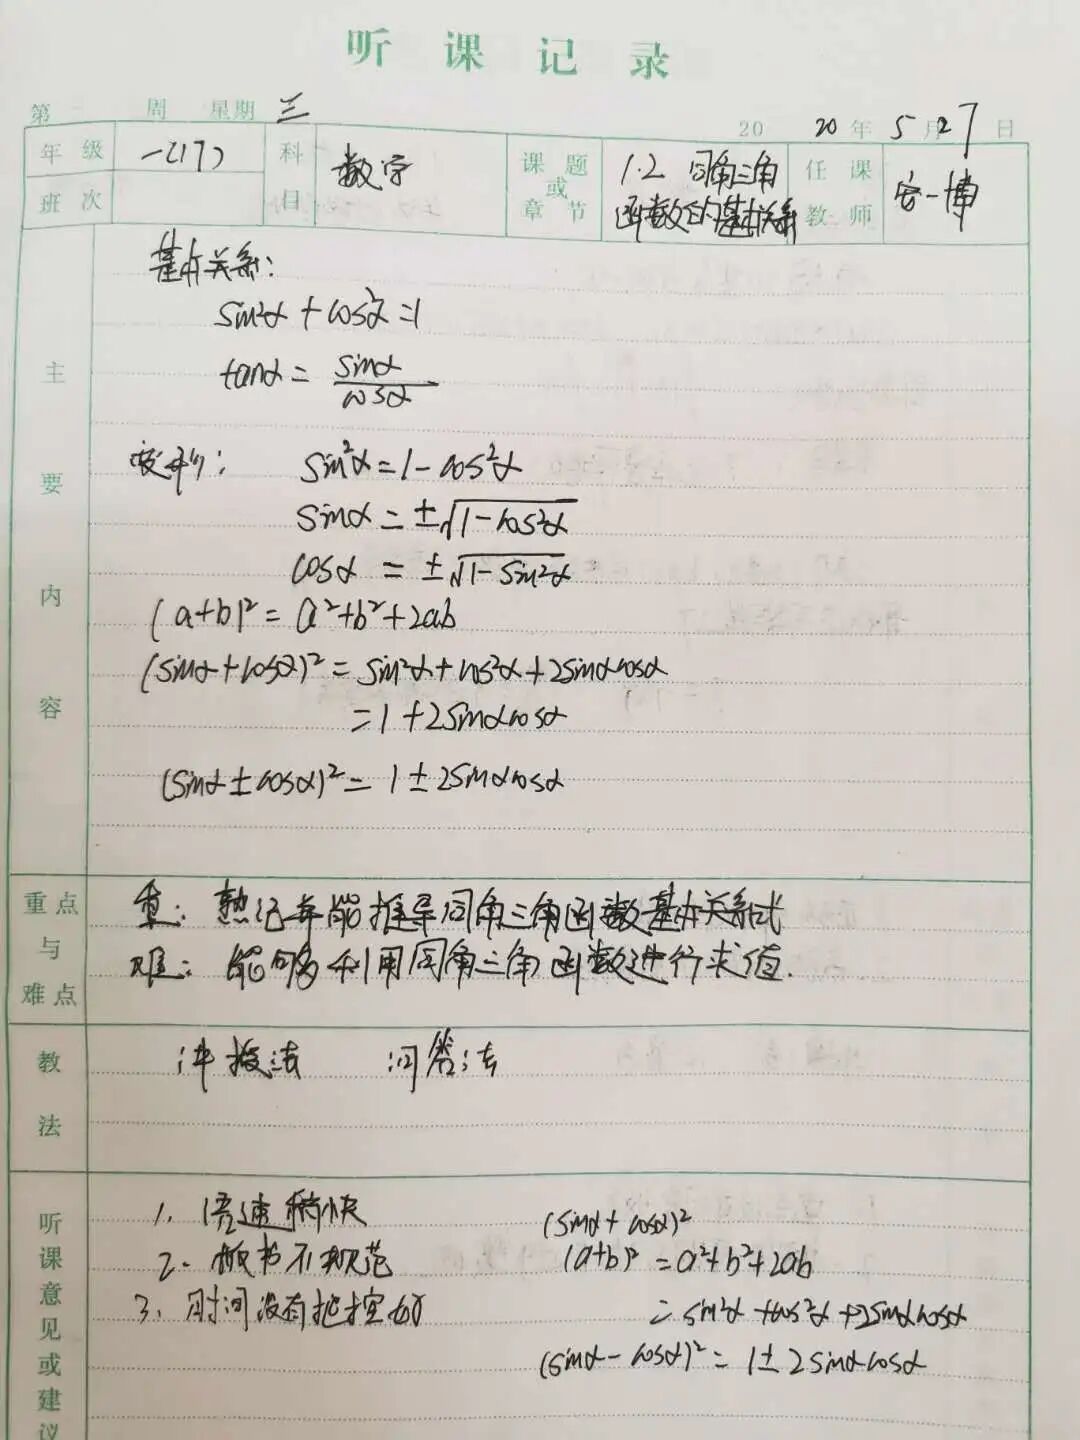 听课记录
第 周 星期 三
20 20 年 5 月 27 日
年级 一(17) 科目 数学 课题或章节 1.2 同角三角函数的基本关系 任课教师 安一博
班次
主要内容
基本关系:
sin²α + cos²α = 1
tanα = sinα/cosα
变形: sin²α = 1 - cos²α
sinα = ±√(1 - cos²α)
cosα = ±√(1 - sin²α)
(a+b)² = a²+b²+2ab
(sinα+cosα)² = sin²α+cos²α+2sinαcosα
= 1+2sinαcosα
(sinα±cosα)² = 1±2sinαcosα
重点与难点
重: 熟记并能推导同角三角函数基本关系式
难: 能够利用同角三角函数进行求值.
教法
讲授法 问答法
听课意见或建议
1. 语速稍快
2. 板书不规范
3. 时间没有把控好
(sinα+cosα)²
(a+b)² = a²+b²+2ab
= sin²α+cos²α+2sinαcosα
(sinα-cosα)² = 1±2sinαcosα